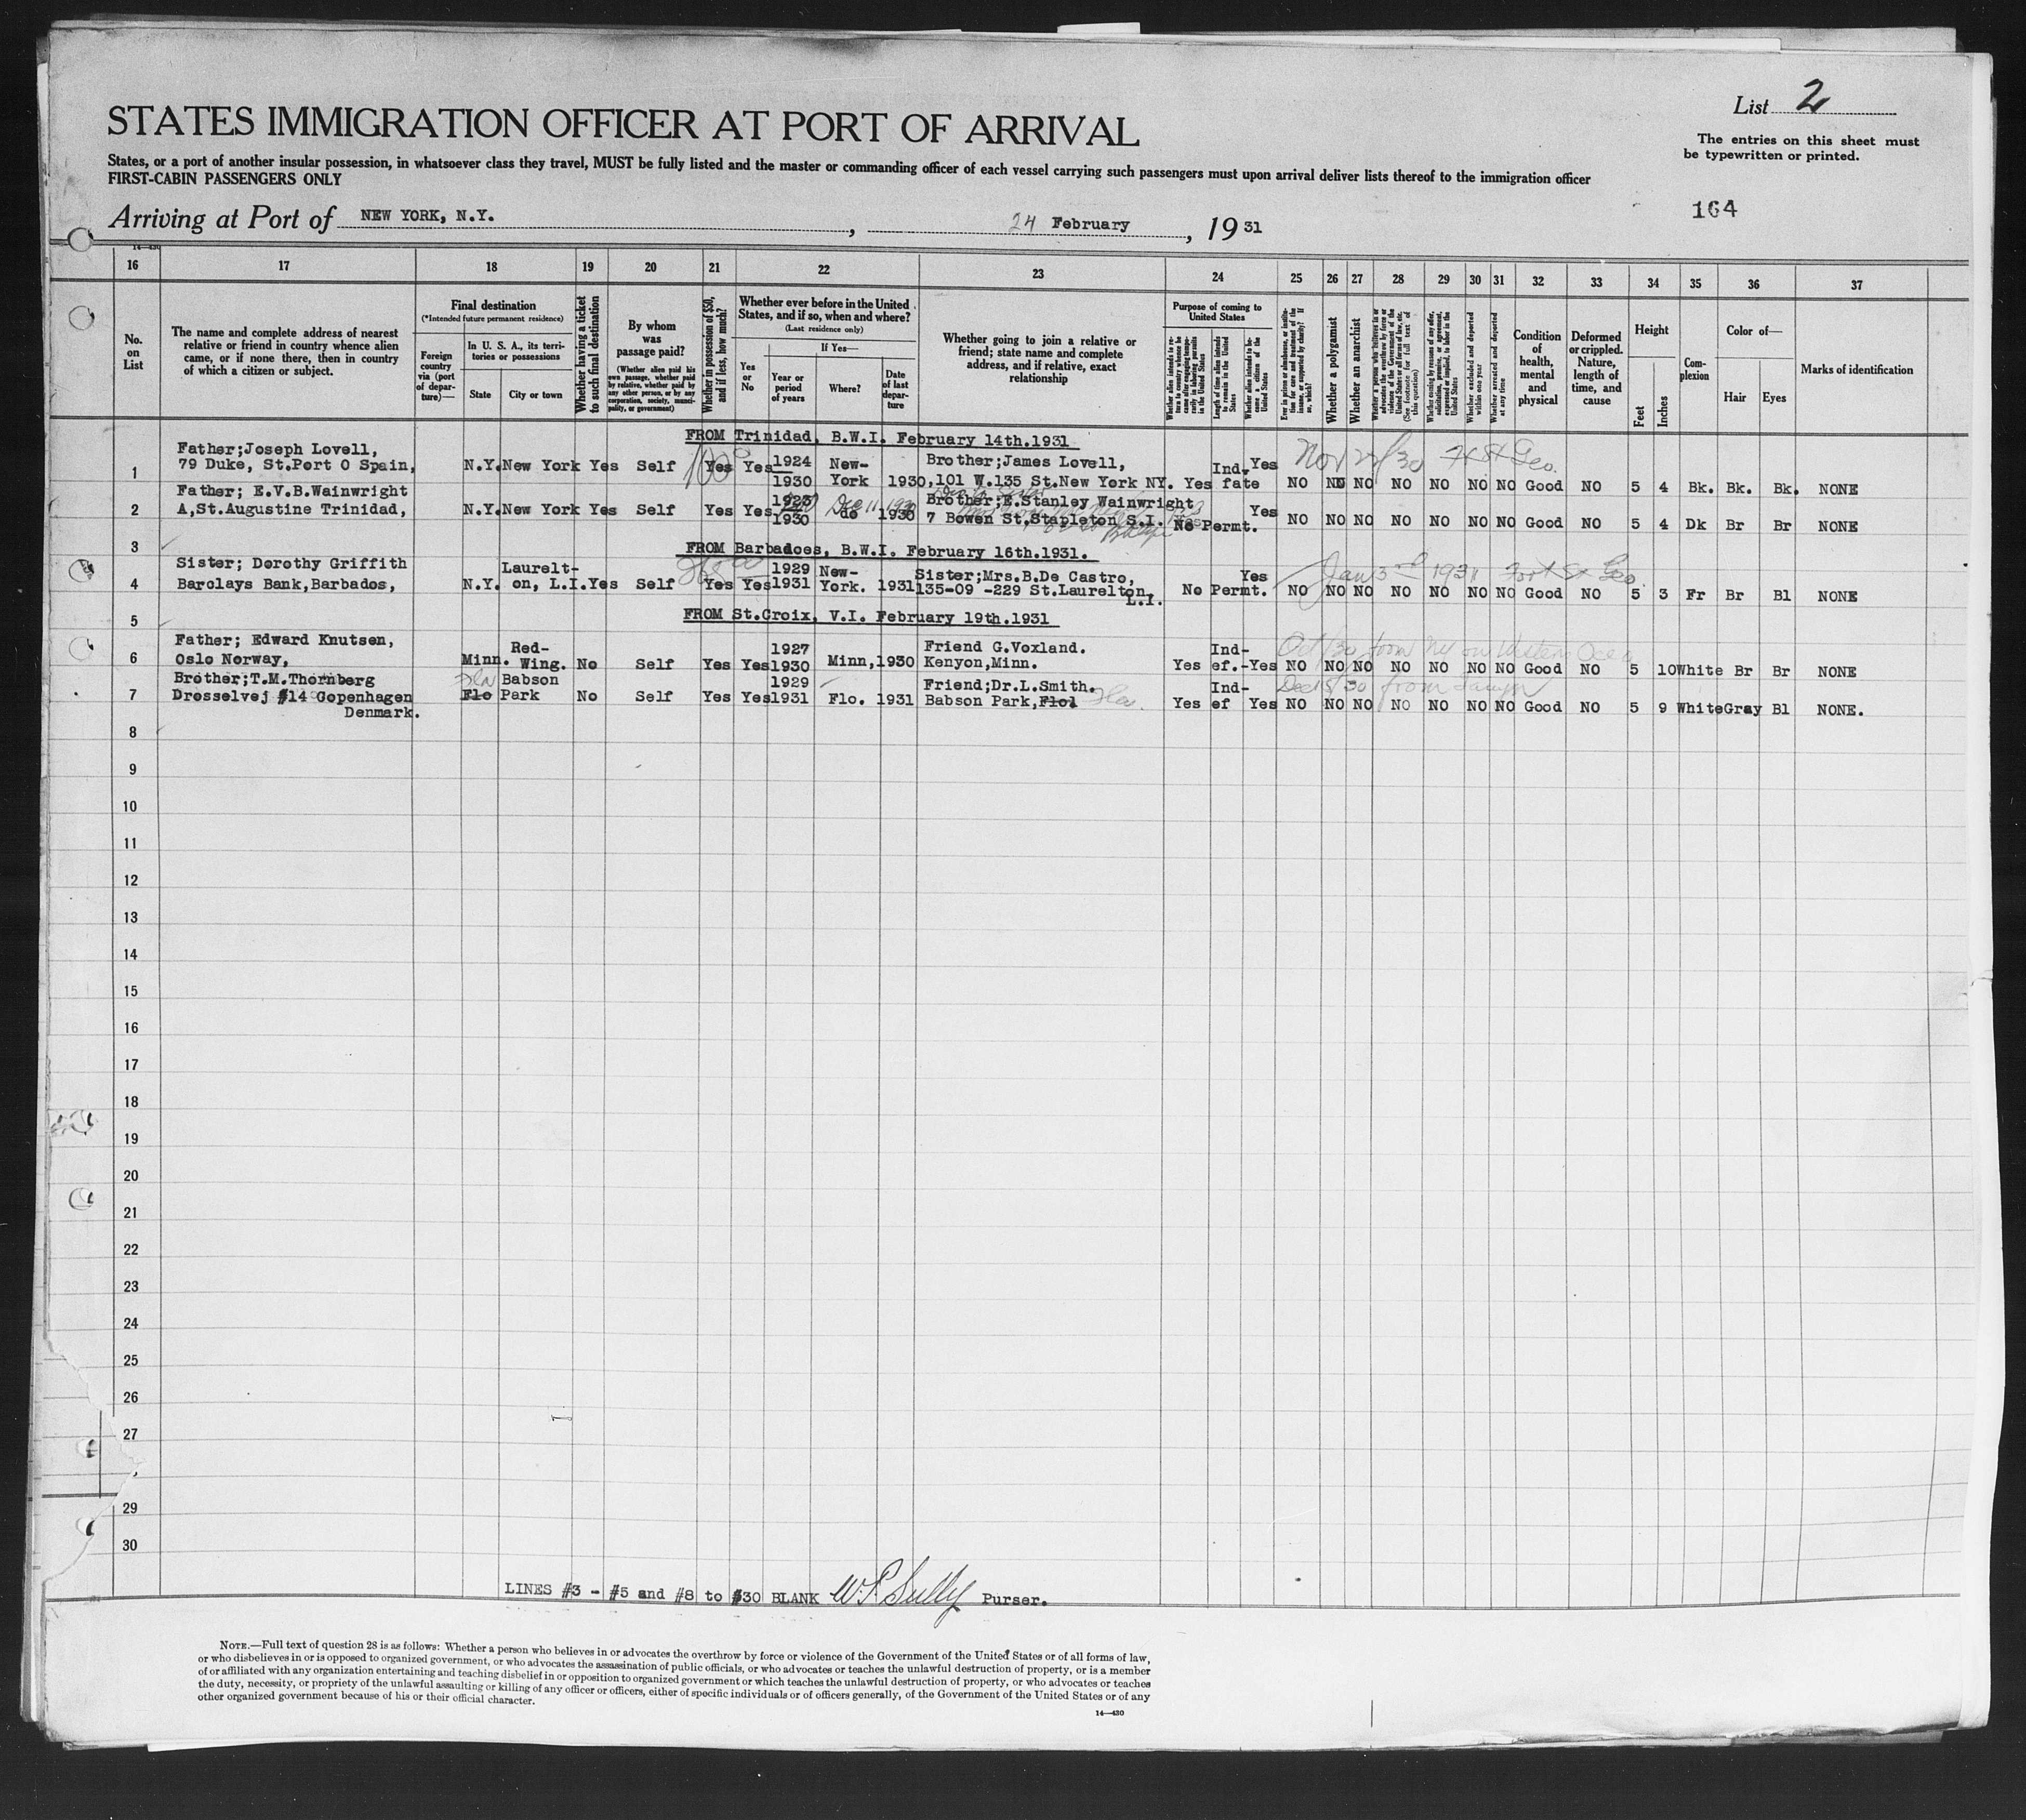 List 2
STATES IMMIGRATION OFFICER AT PORT OF ARRIVAL
The entries on this sheet must
be typewritten or printed.
States, or a port of another insular possession, in whatsoever class they travel, MUST be fully listed and the master or commanding officer of each vessel carrying such passengers must upon arrival deliver lists thereof to the immigration officer
FIRST-CABIN PASSENGERS ONLY
164
Arriving at Port of NEW YORK, N.Y., 24 February, 19 31
16 17 18 19 20 21 22 23 24 25 26 27 28 29 30 31 32 33 34 35 36 37
No. on List
The name and complete address of nearest
relative or friend in country whence alien
came, or if none there, then in country
of which a citizen or subject.
Final destination
(*Intended future permanent residence)
Foreign country via (port of departure)—
In U. S. A., its territories or possessions
State
City or town
Whether having a ticket to such final destination
By whom was passage paid?
(Whether alien paid his own passage, whether paid by relative, whether paid by any other person, or by any corporation, society, municipality, or government)
Whether in possession of $50, and if less, how much?
Whether ever before in the United States, and if so, when and where?
(Last residence only)
Yes or No
If Yes—
Year or period of years
Where?
Date of last departure
Whether going to join a relative or
friend; state name and complete
address, and if relative, exact
relationship
Purpose of coming to United States
Length of time alien intends to remain in the United States
Whether alien intends to become a citizen of the United States
Whether a polygamist
Whether an anarchist
Whether excluded and deported within one year
Whether arrested and deported at any time
Condition of health, mental and physical
Deformed or crippled. Nature, length of time, and cause
Height
Feet
Inches
Complexion
Color of—
Hair
Eyes
Marks of identification
FROM Trinidad, B.W.I. February 14th.1931
1 Father;Joseph Lovell, 79 Duke, St.Port O Spain, N.Y. New York Yes Self 100 Yes Yes 1924 1930 New-York 1930, Brother;James Lovell, 101 W.135 St.New York NY. Yes Ind. fate Yes NO NO NO NO NO NO NO Good NO 5 4 Bk. Bk. Bk. NONE
Nov 22/30 Ft St Geo.
2 Father; E.V.B.Wainwright A,St.Augustine Trinidad, N.Y. New York Yes Self Yes Yes 1923 1930 do 1930 Brother;E.Stanley Wainwright 7 Bowen St,Stapleton S.I. No Permt. Yes NO NO NO NO NO NO NO Good NO 5 4 Dk Br Br NONE
Dec 11 1930
3
FROM Barbadoes, B.W.I. February 16th.1931.
4 Sister; Dorothy Griffith Barclays Bank,Barbados, N.Y. Laurelt-on, L.I. Yes Self Yes Yes 1929 1931 New-York. 1931 Sister;Mrs.B.De Castro, 135-09 -229 St.Laurelton, L.I. No Permt. Yes NO NO NO NO NO NO NO Good NO 5 3 Fr Br Bl NONE
Jan 3rd 1931 Fort St Geo.
5
FROM St.Croix, V.I. February 19th.1931
6 Father; Edward Knutsen, Oslo Norway, Minn. Red-Wing. No Self Yes Yes 1927 1930 Minn, 1930 Friend G.Voxland. Kenyon,Minn. Yes Ind-ef.- Yes NO NO NO NO NO NO NO Good NO 5 10 White Br Br NONE
7 Brother;T.M.Thornberg Drosselvej #14 Copenhagen Denmark. Fla Flo Babson Park No Self Yes Yes 1929 1931 Flo. 1931 Friend;Dr.L.Smith. Babson Park,Flol Fla. Yes Ind-ef Yes NO NO NO NO NO NO NO Good NO 5 9 White Gray Bl NONE.
8
9
10
11
12
13
14
15
16
17
18
19
20
21
22
23
24
25
26
27
29
30
LINES #3 - #5 and #8 to #30 BLANK W.P. Sully Purser.
NOTE.—Full text of question 28 is as follows: Whether a person who believes in or advocates the overthrow by force or violence of the Government of the United States or of all forms of law,
or who disbelieves in or is opposed to organized government, or who advocates the assassination of public officials, or who advocates or teaches the unlawful destruction of property, or is a member
of or affiliated with any organization entertaining and teaching disbelief in or opposition to organized government or which teaches the unlawful destruction of property, or who advocates or teaches
the duty, necessity, or propriety of the unlawful assaulting or killing of any officer or officers, either of specific individuals or of officers generally, of the Government of the United States or of any
other organized government because of his or their official character.
14—430